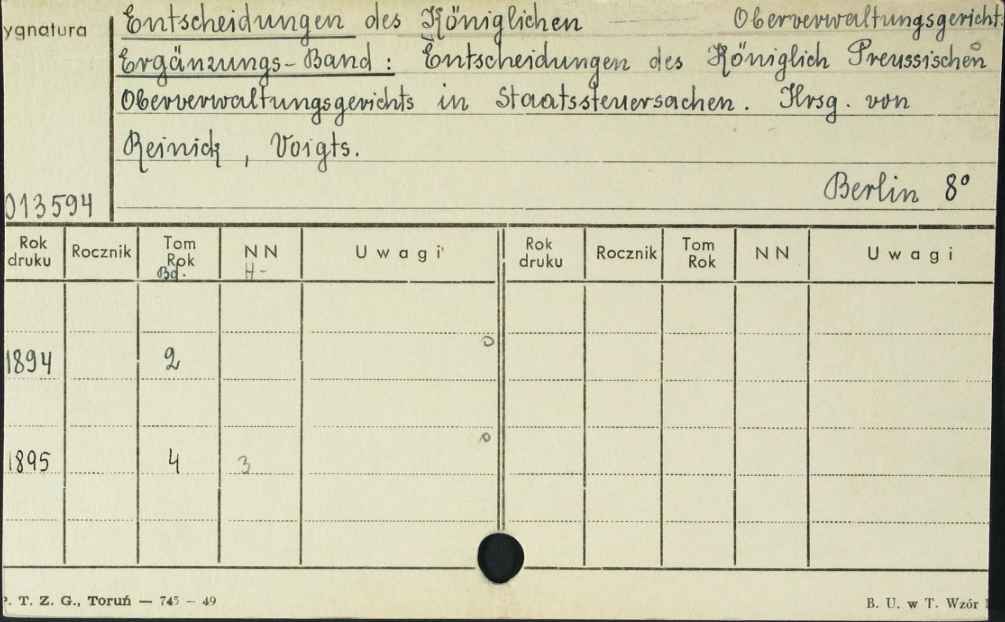 ygnatura
Entscheidungen des Königlichen Oberverwaltungsgericht.
Ergänzungs-Band: Entscheidungen des Königlich Preussischen
Oberverwaltungsgerichts in Staatssteuersachen. Hrsg. von
Reinick, Voigts.
Berlin 8°
013594
Rok druku Rocznik Tom Rok NN Uwagi Rok druku Rocznik Tom Rok NN Uwagi
Bd. H-
1894 2
1895 4 3
P. T. Z. G., Toruń — 745 — 49 B. U. w T. Wzór